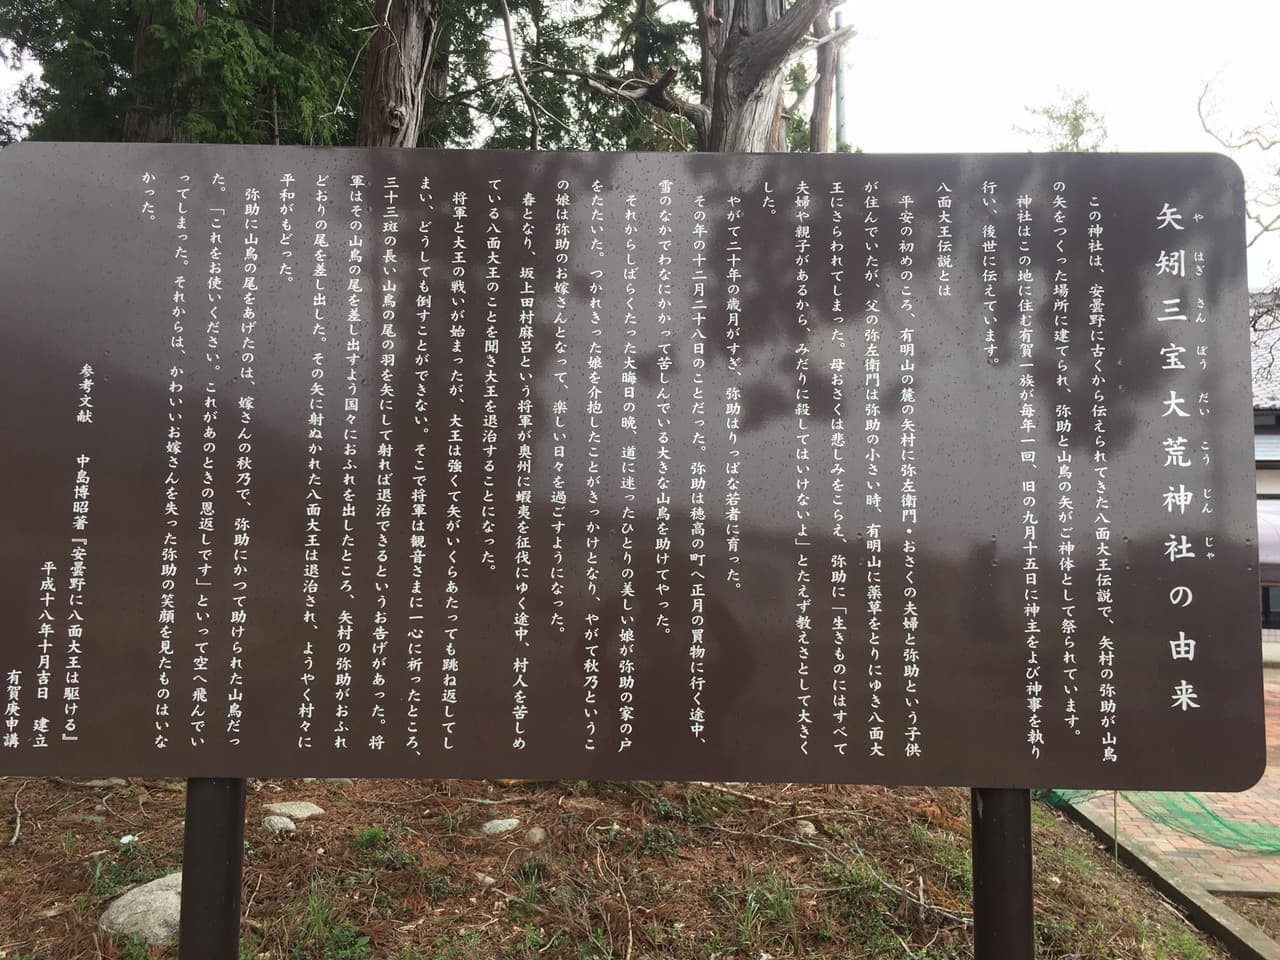 矢矧三宝大荒神社の由来
やはぎさんぽうだいこうじんじゃ
この神社は、安曇野に古くから伝えられてきた八面大王伝説で、矢村の弥助が山鳥
の矢をつくった場所に建てられ、弥助と山鳥の矢がご神体として祭られています。
神社はこの地に住む有賀一族が毎年一回、旧の九月十五日に神主をよび神事を執り
行い、後世に伝えています。
八面大王伝説とは
平安の初めのころ、有明山の麓の矢村に弥左衛門・おさくの夫婦と弥助という子供
が住んでいたが、父の弥左衛門は弥助の小さい時、有明山に薬草をとりにゆき八面大
王にさらわれてしまった。母おさくは悲しみをこらえ、弥助に「生きものにはすべて
夫婦や親子があるから、みだりに殺してはいけないよ」とたえず教えさとして大きく
した。
やがて二十年の歳月がすぎ、弥助はりっぱな若者に育った。
その年の十二月二十八日のことだった。弥助は穂高の町へ正月の買物に行く途中、
雪のなかでわなにかかって苦しんでいる大きな山鳥を助けてやった。
それからしばらくたった大晦日の晩、道に迷ったひとりの美しい娘が弥助の家の戸
をたたいた。つかれきった娘を介抱したことがきっかけとなり、やがて秋乃というこ
の娘は弥助のお嫁さんとなって、楽しい日々を過ごすようになった。
春となり、坂上田村麻呂という将軍が奥州に蝦夷を征伐にゆく途中、村人を苦しめ
ている八面大王のことを聞き大王を退治することになった。
将軍と大王の戦いが始まったが、大王は強くて矢がいくらあたっても跳ね返してし
まい、どうしても倒すことができない。そこで将軍は観音さまに一心に祈ったところ、
三十三斑の長い山鳥の尾の羽を矢にして射れば退治できるというお告げがあった。将
軍はその山鳥の尾を差し出すよう国々におふれを出したところ、矢村の弥助がおふれ
どおりの尾を差し出した。その矢に射ぬかれた八面大王は退治され、ようやく村々に
平和がもどった。
弥助に山鳥の尾をあげたのは、嫁さんの秋乃で、弥助にかつて助けられた山鳥だっ
た。「これをお使いください。これがあのときの恩返しです」といって空へ飛んでい
ってしまった。それからは、かわいいお嫁さんを失った弥助の笑顔を見たものはいな
かった。
参考文献　中島博昭著『安曇野に八面大王は駆ける』
平成十八年十月吉日　建立
有賀庚申講